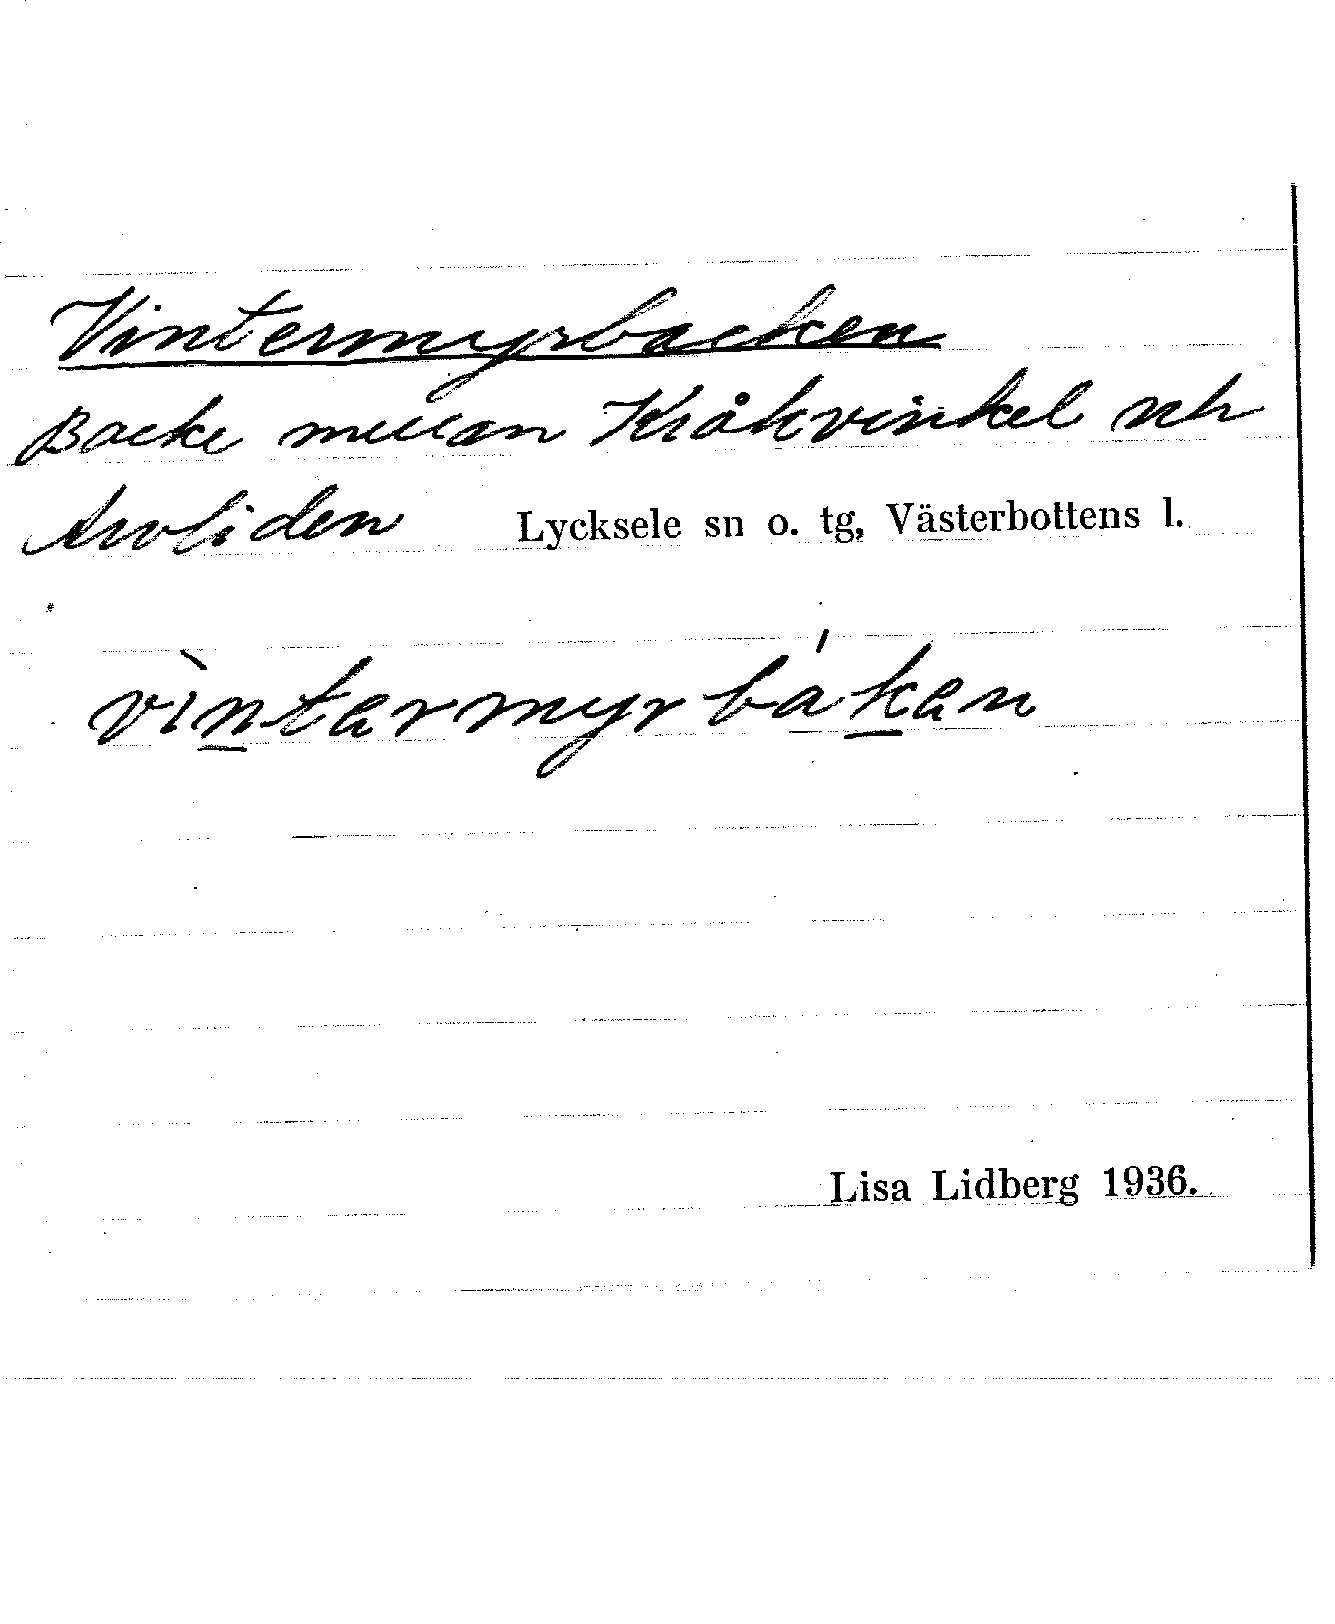 Vintermyrbacken
Backe mellan Kråkvinkel och
Avoliden Lycksele sn o. tg, Västerbottens l.
vìntermyrbáken
Lisa Lidberg 1936.